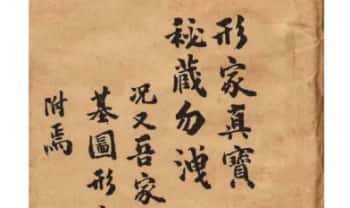 形家真寶
秘蔵勿洩
况又吾家
墓圖形
附焉